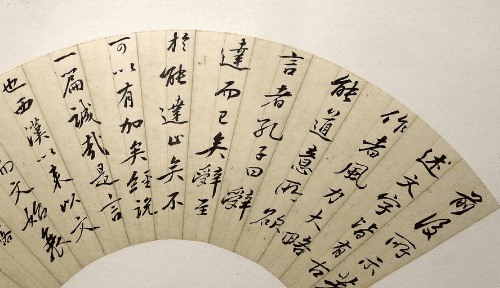 前後所示著
述文字皆有古
作者風力大略
能道意所欲
言者孔子曰辭
達而已矣辭至
於能達止矣不
可以有加矣經說
一篇誠哉是言
也西漢以來以文
而文始衰